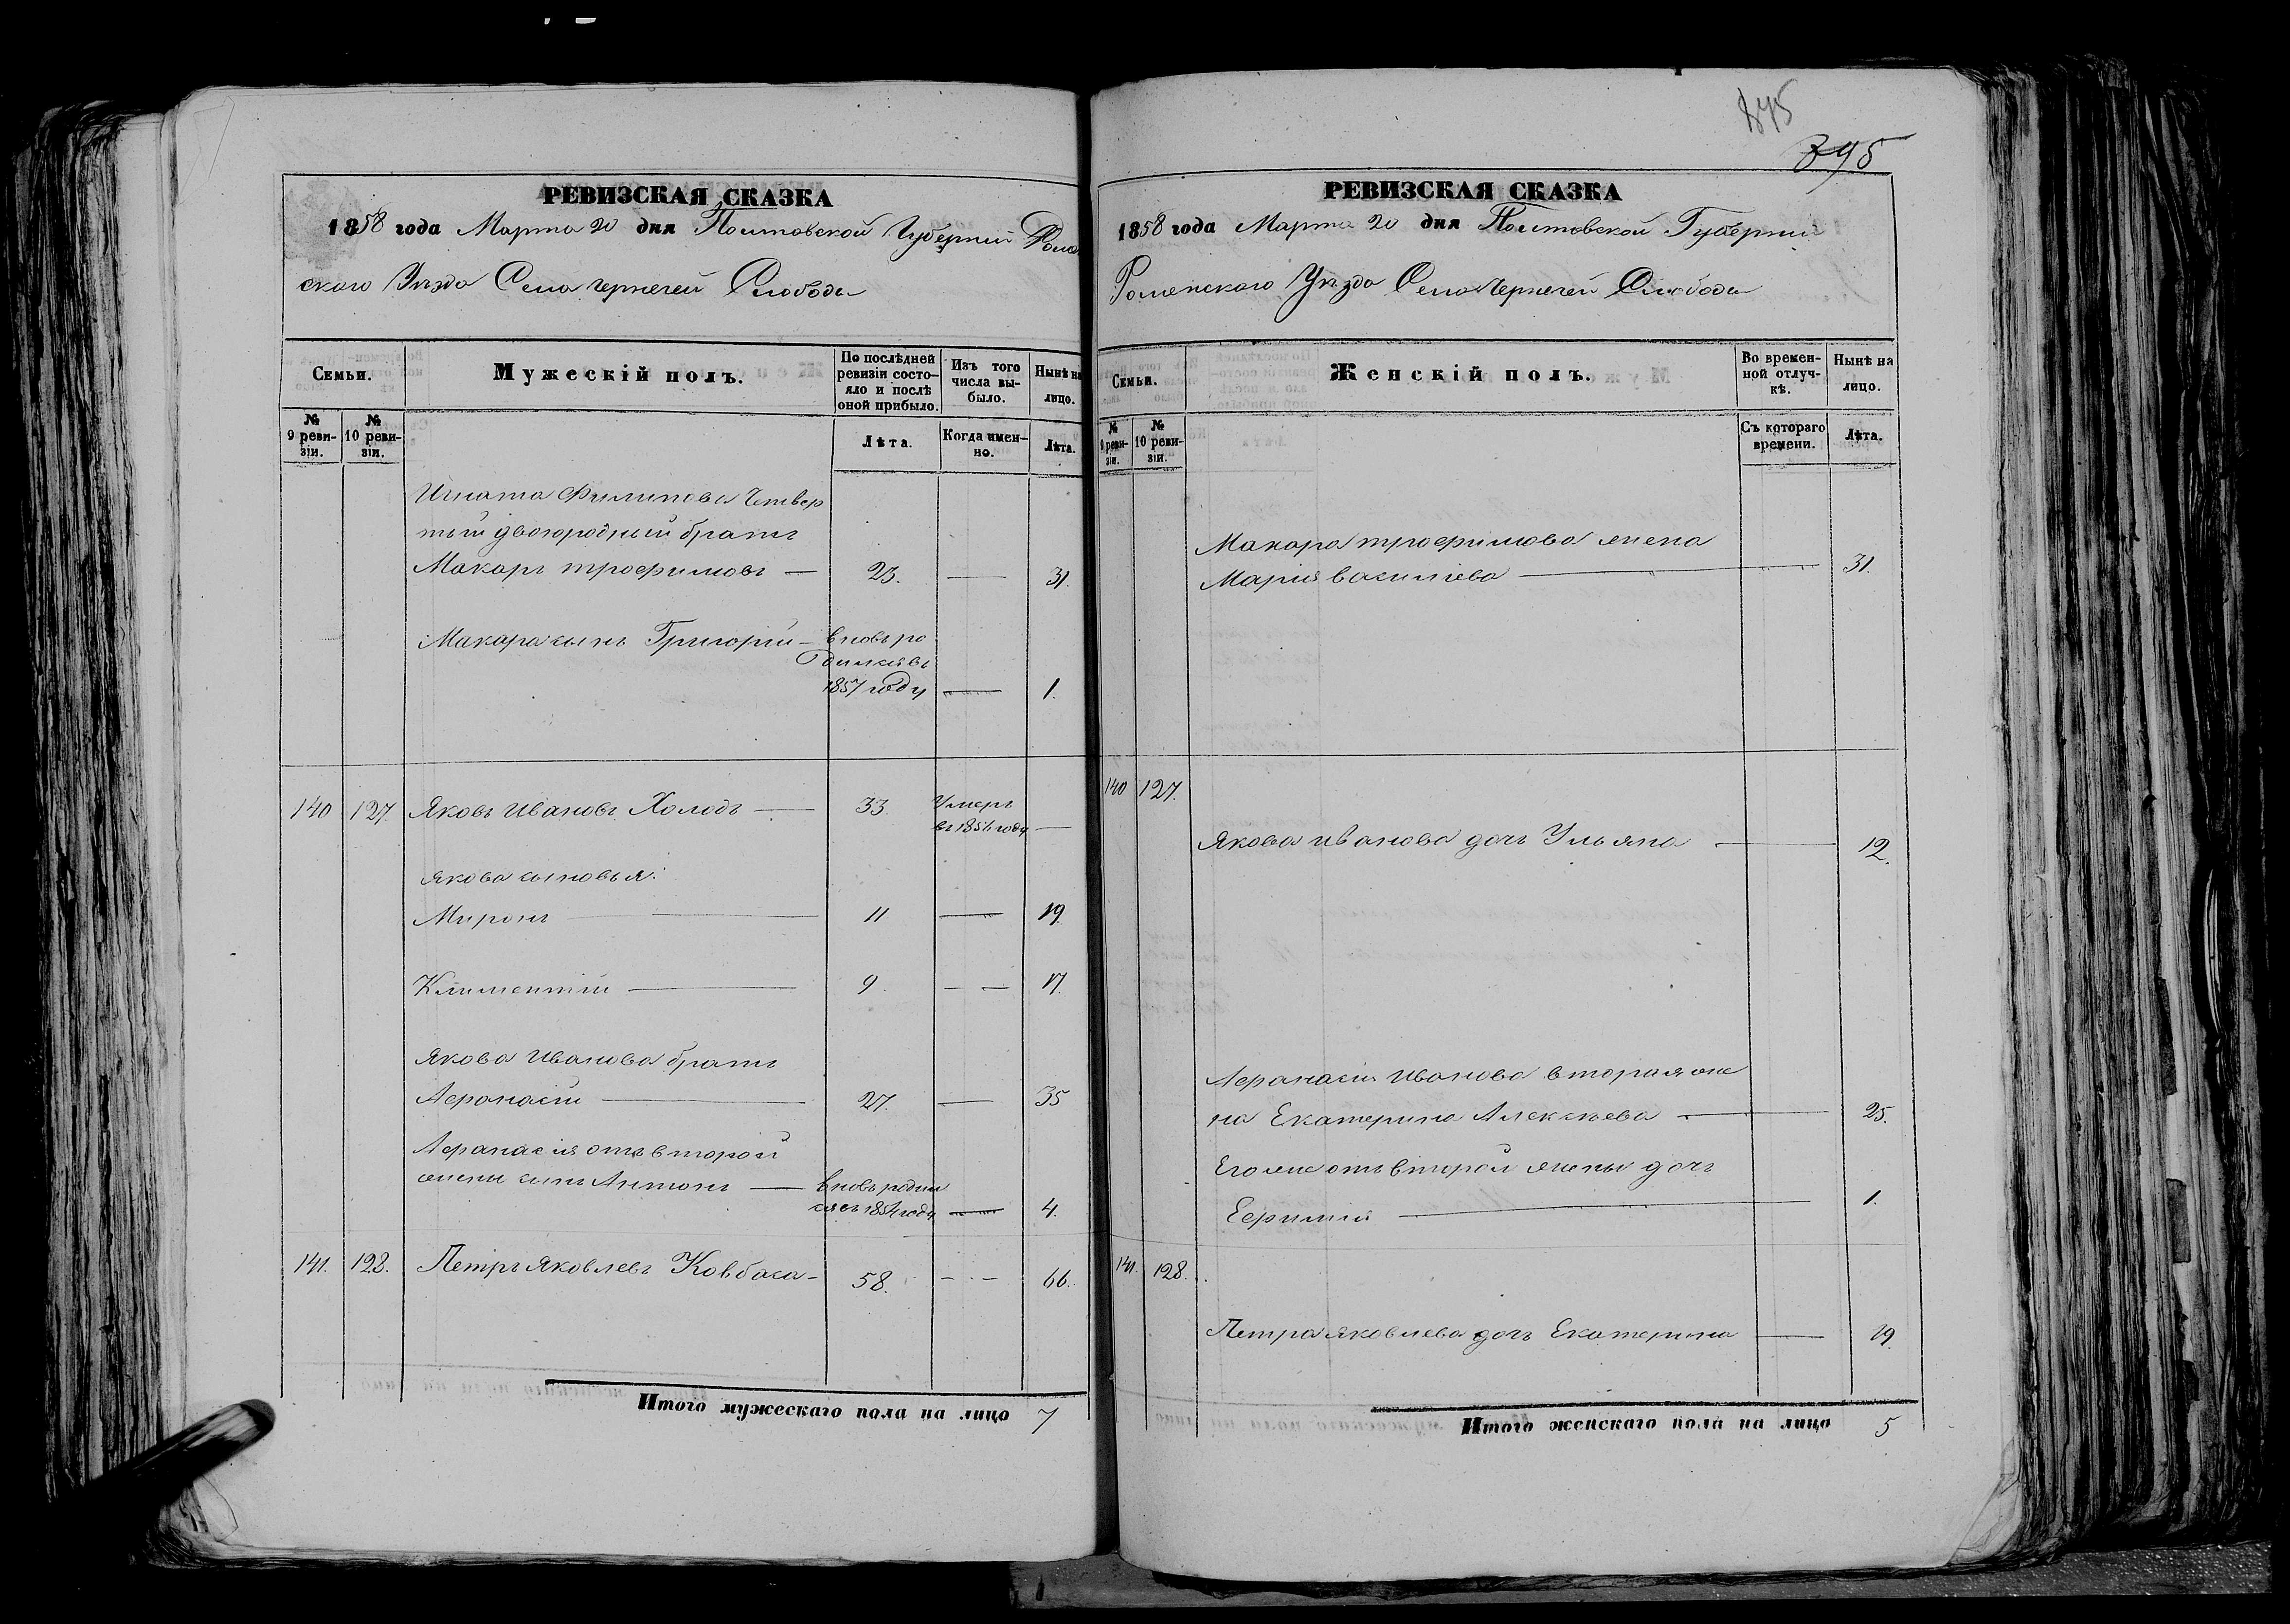 РЕВИЗСКАЯ СКАЗКА
1858 года Марта 20 дня Полтавской Губернии Ромен
скаго Уѣзда Села Чернечей Слободы
Семьи.
Мужескій полъ.
По послѣдней
ревизіи состо-
яло и послѣ
оной прибыло.
Изъ того
числа вы-
было.
Нынѣ на
лицо.
№
9 реви-
зіи.
№
10 реви-
зіи.
Лѣта.
Когда имен-
но.
Лѣта.
Игната Филипова Четвер
тый двоюродный братъ
Макаръ трофимовъ — 23. — 31.
Макара сынъ Григорій — вновь ро
дился въ
1857 году — 1.
140 127. Яковъ Ивановъ Холодъ — 33. Умеръ
въ 1854 году —
Якова сыновья:
Миронъ — 11 — 19.
Климентій — 9. — — 17.
Якова Иванова братъ
Афанасій — 27. — 35
Афанасія отъ второй
жены сынъ Антонъ — вновь родил
ся въ 1854 году — 4.
141. 128. Петръ Яковлевъ Ковбаса — 58. — — 66.
Итого мужескаго пола на лицо 7
875
895
РЕВИЗСКАЯ СКАЗКА
1858 года Марта 20 дня Полтавской Губерніи
Роменскаго Уѣзда Села Чернечей Слободы
Семьи.
Женскій полъ.
Во времен-
ной отлуч-
кѣ.
Нынѣ на
лицо.
№
9 реви-
зіи.
№
10 реви-
зіи.
Съ котораго
времени.
Лѣта.
Макара трофимова жена
Марія васильева — 31.
140 127.
Якова иванова дочь Ульяна — 12.
Афанасія Иванова вторая же
на Екатерина Алексѣева — 25.
Его же отъ второй жены дочь
Ефимія — 1.
141. 128.
Петра яковлева дочь Екатерина — 19.
Итого женскаго пола на лицо 5